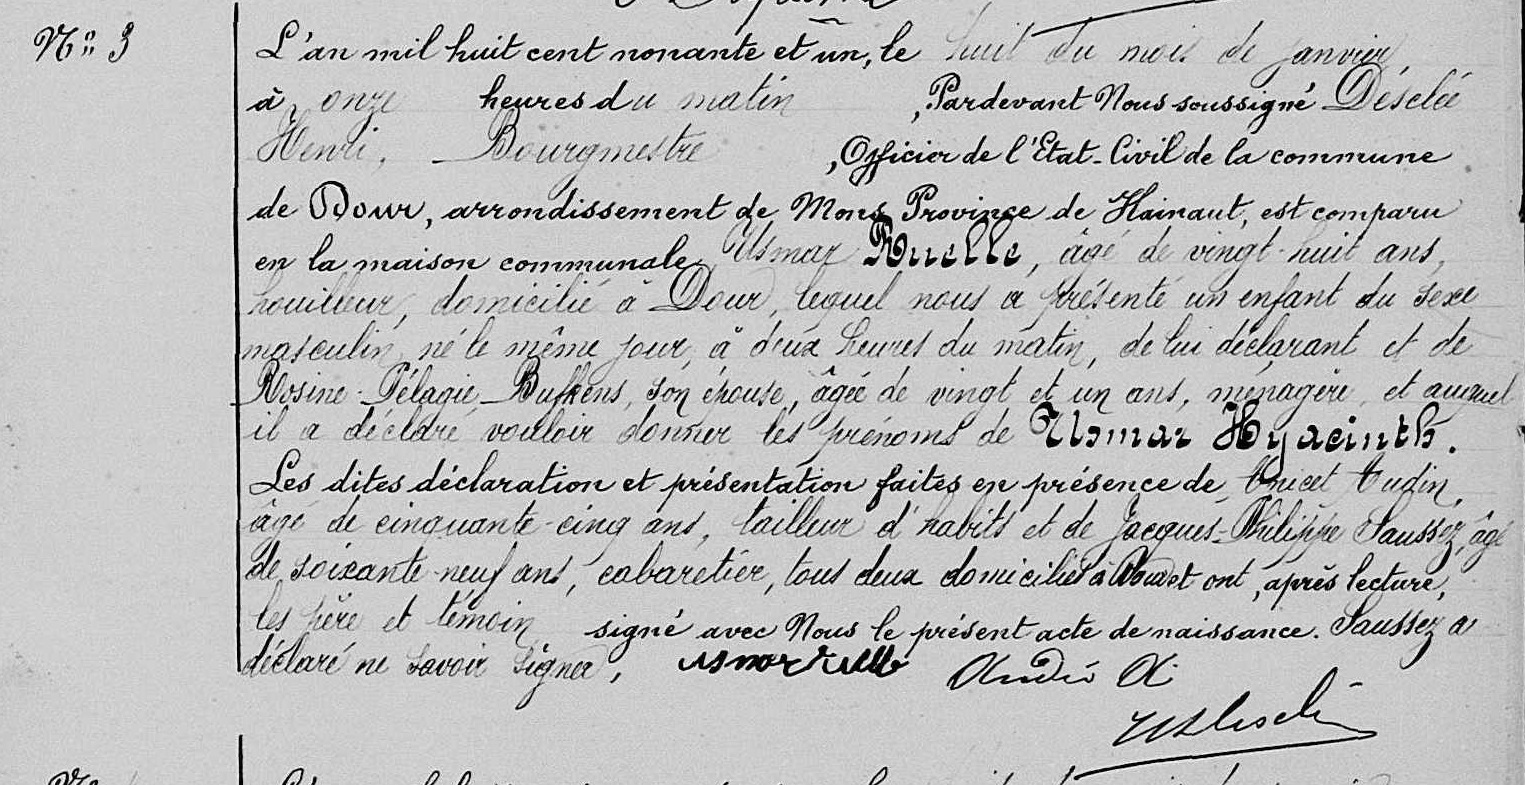 N° 3
L'an mil huit cent nonante et un, le huit du mois de janvier,
à onze heures du matin, Pardevant Nous soussigné Désclée
Henri, Bourgmestre, Officier de l'Etat-Civil de la commune
de Dour, arrondissement de Mons Province de Hainaut, est comparu
en la maison communale, Usmar Ruelle, âgé de vingt-huit ans,
houilleur, domicilié à Dour, lequel nous a présenté un enfant du sexe
masculin, né le même jour, à deux heures du matin, de lui déclarant et de
Rosine-Pélagie Buffkens, son épouse, âgée de vingt et un ans, ménagère, et auquel
il a déclaré vouloir donner les prénoms de Usmar Hyacinth.
Les dites déclaration et présentation faites en présence de Anicet Audin,
âgé de cinquante-cinq ans, tailleur d'habits et de Jacques-Philippe Saussez, âgé
de soixante-neuf ans, cabaretier, tous deux domiciliés à Dour et ont, après lecture,
les père et témoin signé avec Nous le présent acte de naissance. Saussez a
déclaré ne savoir signer,